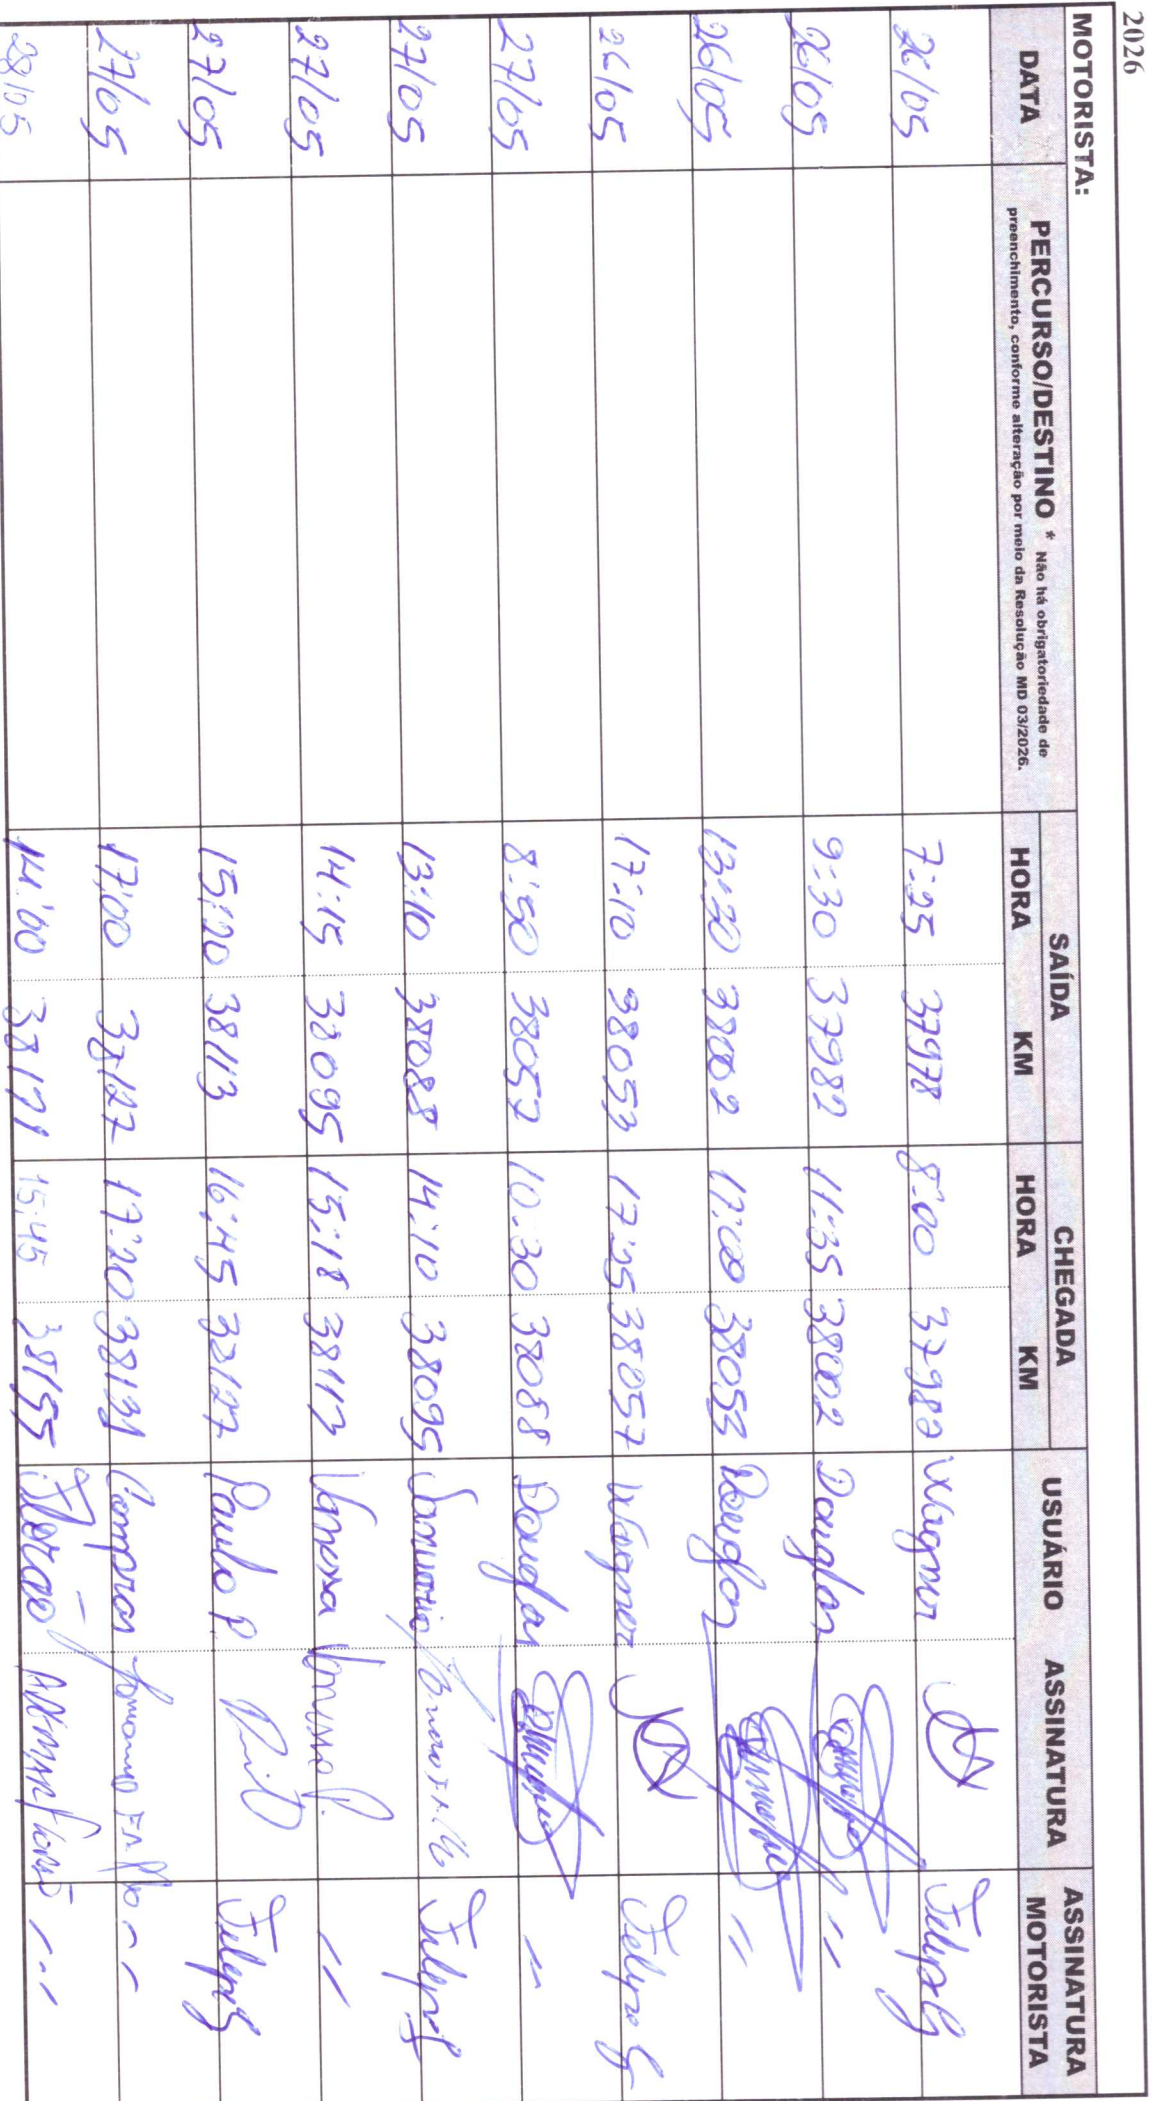 2026
MOTORISTA:
DATA PERCURSO/DESTINO * Não há obrigatoriedade de preenchimento, conforme alteração por meio da Resolução MD 03/2026. SAÍDA HORA KM CHEGADA HORA KM USUÁRIO ASSINATURA ASSINATURA MOTORISTA
26/05 7:25 37978 8:00 37982 Wagner Felipe G
26/05 9:30 37982 11:35 38002 Douglas "
26/05 13:20 38002 17:00 38053 Douglas "
26/05 17:10 38053 17:25 38057 Wagner Felipe G
27/05 8:50 38057 10:30 38088 Douglas "
27/05 13:10 38088 14:10 38095 Felipe G
27/05 14:15 38095 15:18 38113 Vanessa Vanessa P. "
27/05 15:20 38113 16:45 38127 Paulo P. Felipe G
27/05 17:00 38127 17:20 38131 Compras "
28/05 14:00 38131 15:45 38155 "